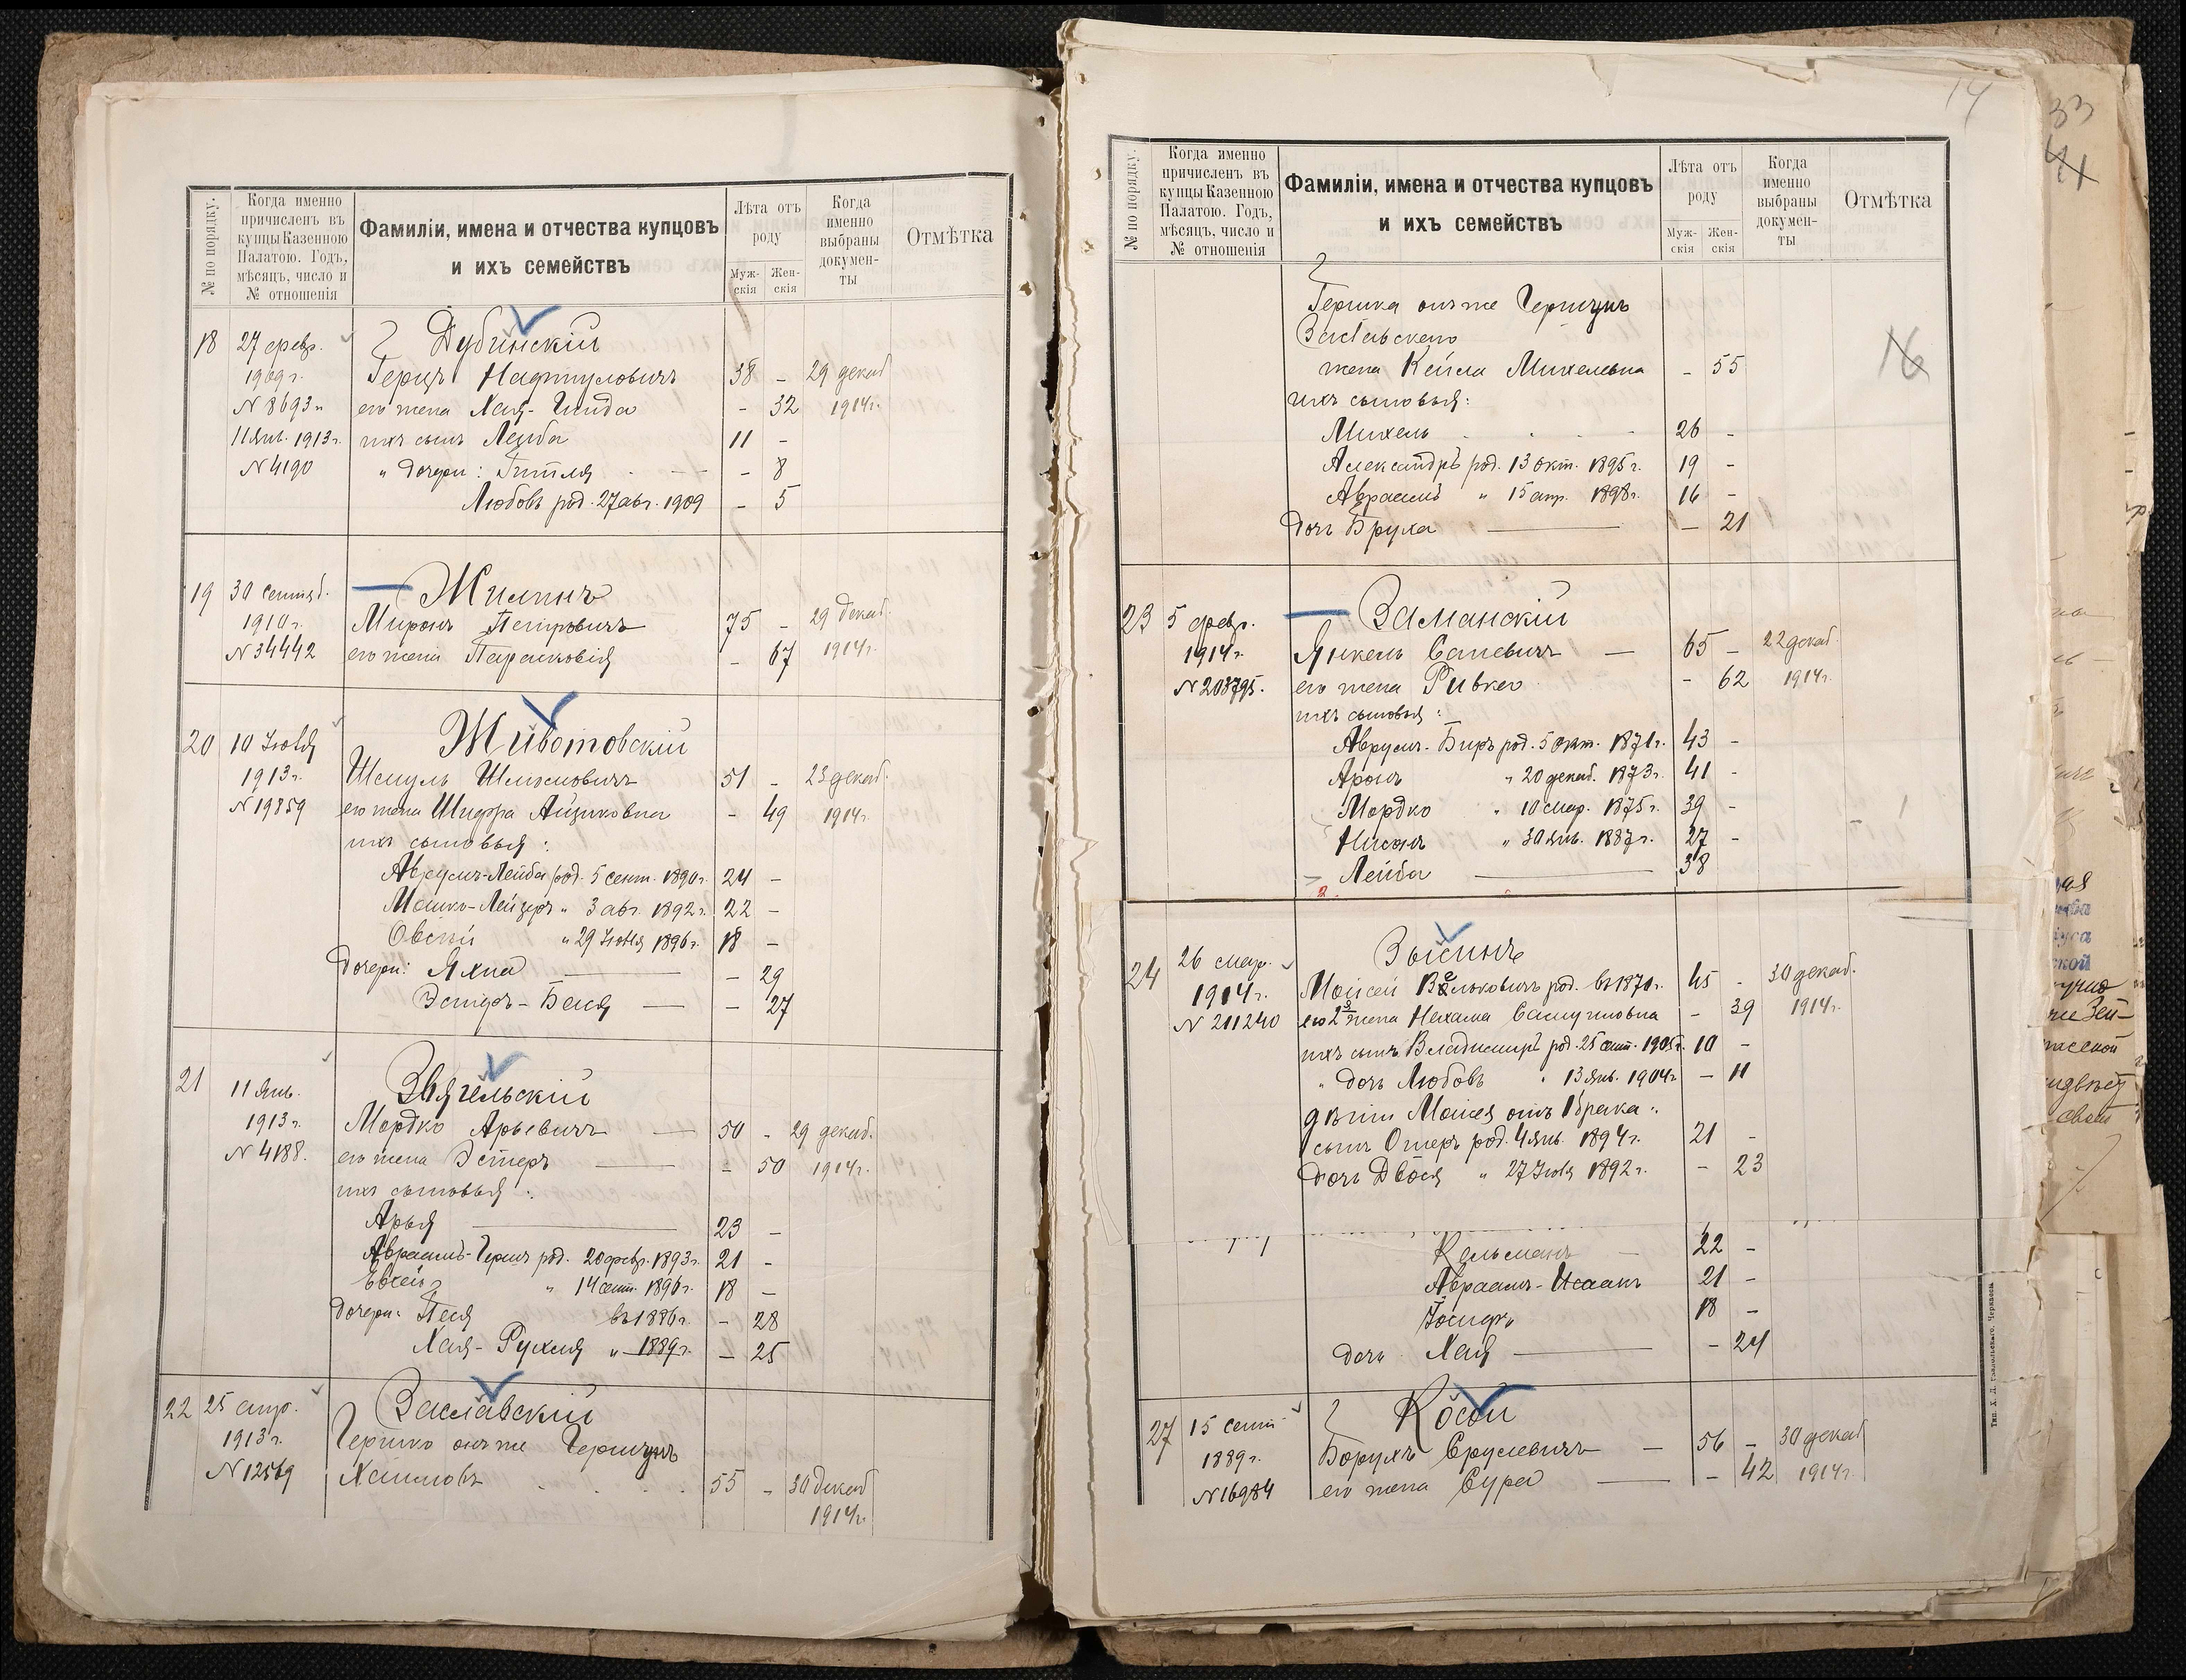 № по порядку.
Когда именно
причисленъ въ
купцы Казенною
Палатою. Годъ,
мѣсяцъ, число и
№ отношенія
Фамиліи, имена и отчества купцовъ
и ихъ семействъ
Лѣта отъ
роду
Муж-
скія
Жен-
скія
Когда
именно
выбраны
докумен-
ты
Отмѣтка
18 27 февр. Дубинскій
1909 г. Герцъ Нафтуловичъ 38 - 29 декаб
№ 8693 его жена Хая-Гинда - 32 1914 г.
11 Янв. 1913 г. ихъ сынъ Лейба 11 -
№ 4190 " дочери: Гитля - 8
Любовь род. 27 авг. 1909 - 5
19 30 сентяб. Жилинъ
1910 г. Миронъ Петровичъ 75 - 29 декаб.
№ 34442 его жена Парасковія - 67 1914 г.
20 10 Іюля Животовскій
1913 г. Шмуль 51 - 23 декаб.
№ 19859 его жена Шифра Айзиковна - 49 1914 г.
ихъ сыновья:
Аврумъ-Лейба род. 5 сент. 1890 г. 24 -
Мошко-Лейзеръ " 3 авг. 1892 г. 22 -
Овсѣй " 29 Іюля 1896 г. 18 -
Дочери: Яхна - 29
Эстеръ-Бейя - 27
21 11 Янв. Звягельскій
1913 г. Мордко Арьевичъ 50 - 29 декаб.
№ 4188. его жена Эстеръ - 50 1914 г.
ихъ сыновья:
Арья 23 -
Авраамъ-Гершъ род. 20 февр. 1893 г. 21 -
Евсей " 14 сент. 1896 г. 18 -
Дочери: Песя въ 1886 г. - 28
Хая-Рухля " 1889 г. - 25
22 25 апр. Заславскій
1913 г. Гершко онъ же Гершунъ
№ 12569 Хаимовъ 55 - 30 декаб
1914 г.
14
33
41
№ по порядку.
Когда именно
причисленъ въ
купцы Казенною
Палатою. Годъ,
мѣсяцъ, число и
№ отношенія
Фамиліи, имена и отчества купцовъ
и ихъ семействъ
Лѣта отъ
роду
Муж-
скія
Жен-
скія
Когда
именно
выбраны
докумен-
ты
Отмѣтка
Гершка онъ же Гершунъ
Заславскаго
16
жена Кейла Михелевна - 55
ихъ сыновья:
Михель 26 -
Александръ род. 13 окт. 1895 г. 19 -
Авраамъ " 15 апр. 1898 г. 16 -
Дочь Бруха - 21
23 5 февр. Заманскій
1914 г. Янкель 65 - 22 декаб.
№ 208795. его жена Ривка - 62 1914 г.
ихъ сыновья:
Аврумъ-Беръ род. 5 окт. 1871 г. 43 -
Аронъ " 20 декаб. 1873 г. 41 -
Мордко " 10 мар. 1875 г. 39 -
Нисонъ " 30 янв. 1887 г. 27 -
Лейба 38
24 26 мар. Зысинъ
1914 г. Моисей Вельковичъ род. въ 1870 г. 45 - 30 декаб.
№ 211240 его 2я жена Нехама Самуиловна - 39 1914 г.
ихъ сынъ Владимиръ род. 25 сент. 1905 г. 10 -
" дочь Любовь " 13 Янв. 1904 г. - 11
дѣти Моисея отъ 1 брака:
сынъ Ошеръ род. 4 Янв. 1894 г. 21 -
Дочь Двося " 27 Іюля 1892 г. - 23
Кельманъ 22 -
Авраамъ-Исаакъ 21 -
Іосифъ 18 -
дочь Хая - 24
27 15 сент. Косой
1889 г. Борухъ Срулевичъ 56 - 30 декаб
№ 16984 его жена Сура - 42 1914 г.